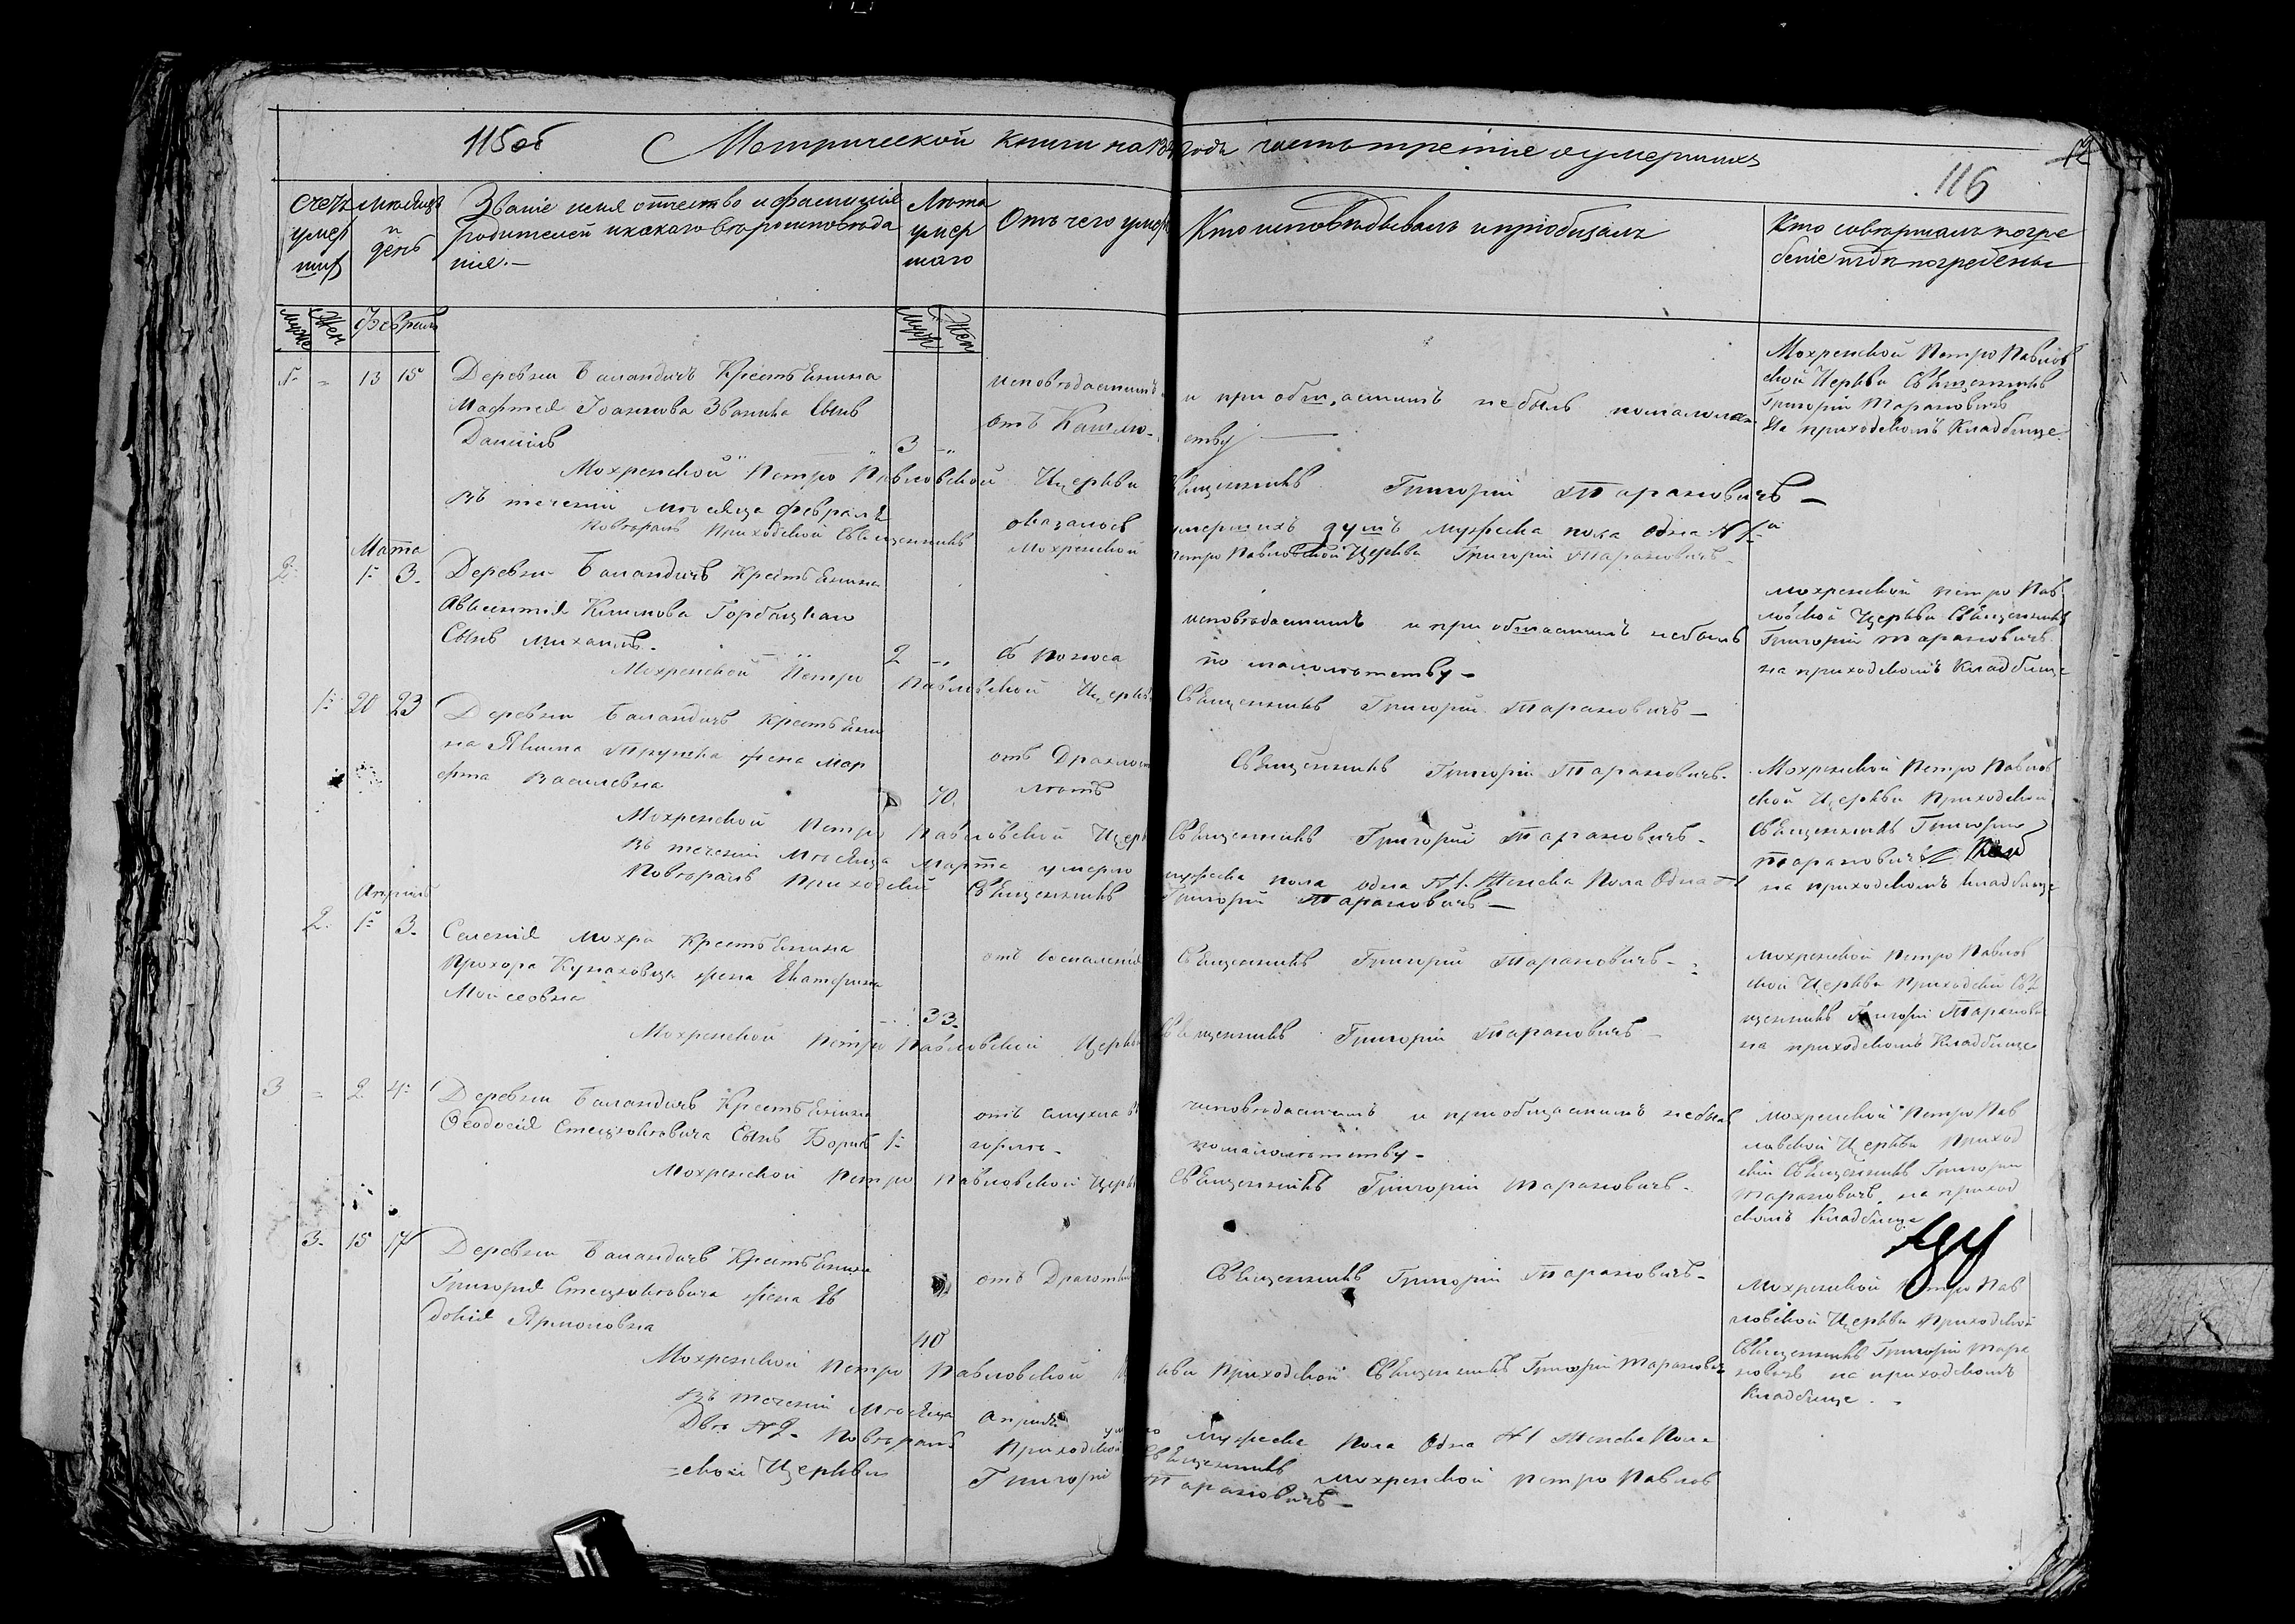 115об Метрической книги на годъ часть третіе о умершихъ
116
Счетъ умер шихъ
Мѣсяцъ и день
Званіе имя отчество и фамиліе
родителей и какаго вѣроисповѣда
ніе.—
Лѣта умер шаго
Отъ чего умеръ
Кто исповѣдывалъ и пріобщалъ
Кто совершалъ погре
беніе и гдѣ погребены
Муже Жен Февраль Муж Жен
1. = 13 15 Деревни Баландичъ Крестьянина
Мафтея Іоаннова Званика Сынъ
Даніилъ 3
исповѣдаемимъ и приобщаемимъ небылъ помалолѣ-
отъ Кашлю. тву
Мохренской Петро Павлов
ской Церкви Священникъ
Григорій Тарановичъ
На приходскомъ Кладбище.
Мохренской Петро Павловской Церкви Священникъ Григорій Тарановичъ—
Въ теченіи мѣсяца февраля оказалось умершихъ душъ мужеска пола одна №1й
Повѣрялъ Приходской Священникъ Мохренской Петро Павловской Церкви Григорій Тарановичъ
Марта
2. 1. 3. Деревни Баландичъ Крестьянина
Авксентія Климова Горбацкаго
Сынъ Михаилъ. 2 Съ Поноса
исповѣдаемимъ и приобщаемимъ небылъ
по малолѣтству—
Мохренской Петро Пав
ловской Церкви Священникъ
Григорій Тарановичъ
на приходскомъ Кладбище
Мохренской Петро Павловской Церкви Священникъ Григорій Тарановичъ—
1. 20 23 Деревни Баландичъ Крестьяни
на Якима жена Мар
фта Василевна 70.
отъ Драхлост
лѣтъ
Священникъ Григорій Тарановичъ.
Мохренской Петро Павлов
ской Церкви Приходской
Священникъ Григорій
Тарановичъ
на приходскомъ кладбище
Мохренской Петро Павловской Церк Священникъ Григорій Тарановичъ.
Въ теченіи Мѣсяца Марта умерло мужеска пола одна №1. Женска Пола Одна
Повѣрялъ Приходской Священникъ Григорій Тарановичъ—
Апрѣль
2. 1. 3. Селенія Мохра Крестьянина
Прохора Кунаховца жена Екатерина
Мойсеовна 33.
отъ воспаленія Священникъ Григорій Тарановичъ.
Мохренской Петро Павлов
ской Церкви Приходскій Свя
щенникъ Григорій Таранови
на приходскомъ Кладбище
Мохренской Петро Павловской Церкви Священникъ Григорій Тарановичъ—
3 = 2 4. Деревни Баландичъ Крестьянина
Феодосія Стецюковича Сынъ Борисъ 1.
исповѣдаемимъ и приобщаемимъ небылъ
помалолѣтству—
Мохренской Петро Пав
ловской Церкви Приход
скій Священникъ Григорій
Тарановичъ. на приход
скомъ Кладбище
Мохренской Петро Павловской Церк Священникъ Григорій Тарановичъ.
3. 15 17 Деревни Баландичъ Крестьянина
Григорія Стецюковича жена Ев
докія Ярмоловна 40
Священникъ Григорій Тарановичъ.
Мохренской Петро Пав
ловской Церкви Приходской
Священникъ Григорій Тара
новичъ на приходскомъ
Кладбище.
Мохренской Петро Павловской Приходской Священникъ Григорій Таранович
Въ теченіи Мѣсяца Апрѣля мужеска Пола Одна №1 Женска Пола
Двѣ №2. Повѣрялъ Приходской Священникъ Мохренской Петро Павлов
=ской Церкви Григорій Тарановичъ—